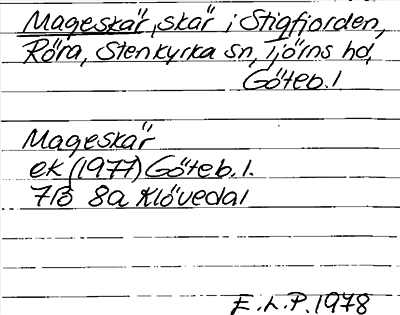 Mageskär, skär i Stigfjorden,
Röra, Stenkyrka sn, Tjörns hd,
Göteb. l
Mageskär
ek (1977) Göteb. l.
7B 8a Klövedal
E. L. P. 1978